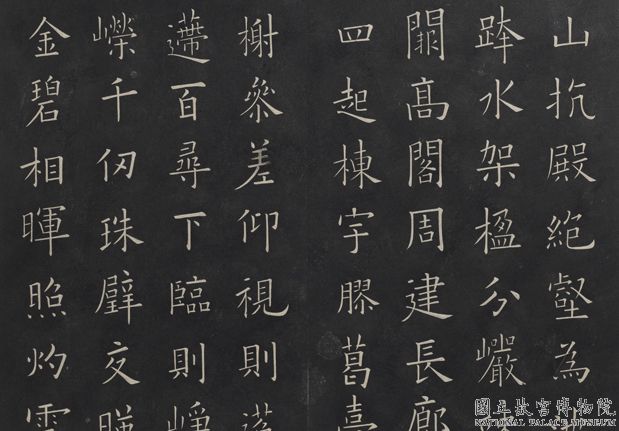 山抗殿絕壑為
跨水架楹分巖
闕高閣周建長廊
四起棟宇膠葛臺
榭參差仰視則
遰百尋下臨則崢
嶸千仞珠璧交
金碧相暉照灼雲
國立故宮博物院
NATIONAL PALACE MUSEUM